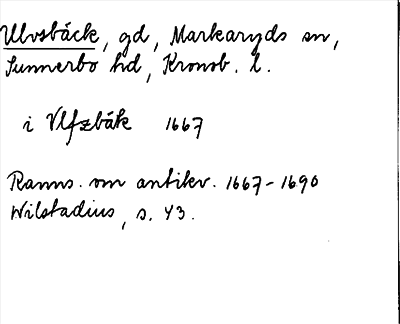 Ulvsbäck, gd, Markaryds sn,
Sunnerbo hd, Kronob. l.
i Vlfzbäk 1667
Ranns. om antikv. 1667-1690
Wilstadius, s. 43.